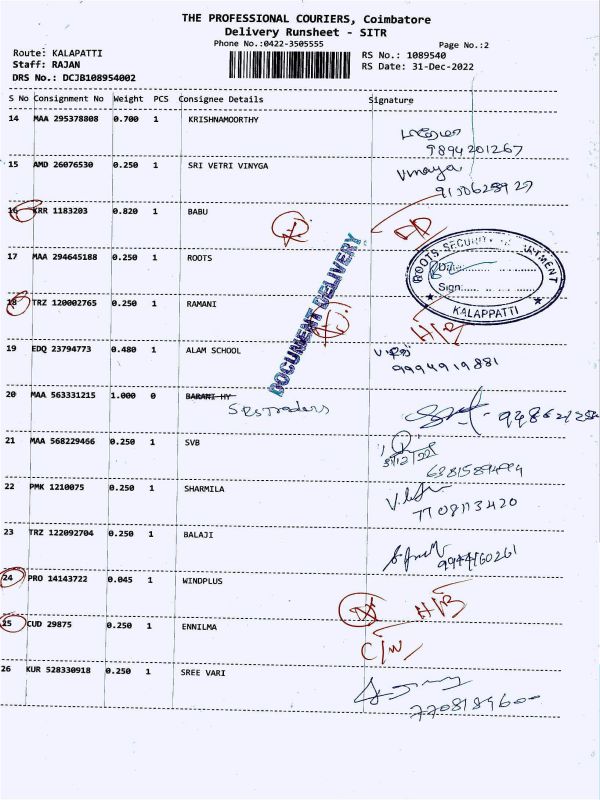 THE PROFESSIONAL COURIERS, Coimbatore
Delivery Runsheet - SITR
Phone No.:0422-3505555 Page No.:2
Route: KALAPATTI RS No.: 1089540
Staff: RAJAN RS Date: 31-Dec-2022
DRS No.: DCJB108954002
S No Consignment No Weight PCS Consignee Details Signature
14 MAA 295378808 0.700 1 KRISHNAMOORTHY
9894201267
15 AMD 26076530 0.250 1 SRI VETRI VINYGA Vinaya
16 KRR 1183203 0.820 1 BABU
17 MAA 294645188 0.250 1 ROOTS
ROOTS SECURITY
Sign:
KALAPPATTI
DOCUMENT DELIVERY.
18 TRZ 120002765 0.250 1 RAMANI
19 EDQ 23794773 0.480 1 ALAM SCHOOL
9994919881
20 MAA 563331215 1.000 0 BARANI HY
SRS Traders
21 MAA 568229466 0.250 1 SVB
31/12/22
22 PMK 1210075 0.250 1 SHARMILA
7708113420
23 TRZ 122092704 0.250 1 BALAJI
24 PRO 14143722 0.045 1 WINDPLUS
H/B
25 CUD 29875 0.250 1 ENNILMA
C/W
26 KUR 528330918 0.250 1 SREE VARI